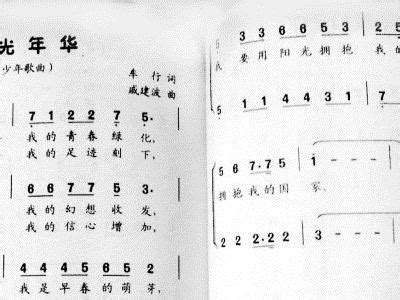 光年华
少年歌曲）
车 行 词
戚建波 曲
7 1 2 2 7 5.
我的青春绿化，
我的足迹刻下，
6 6 7 7 5 3.
我的幻想收发，
我的信心增加，
4 4 4 5 6 5 2
我是早春的萌芽，
5 3 3 6 6 5 3 2 5
我 要用阳光拥抱 我的
5 1 1 4 4 3 1 7
5 6 7·7 5 1 - - -
拥抱我的国 家。
2 2 2·2 2 3 - - -